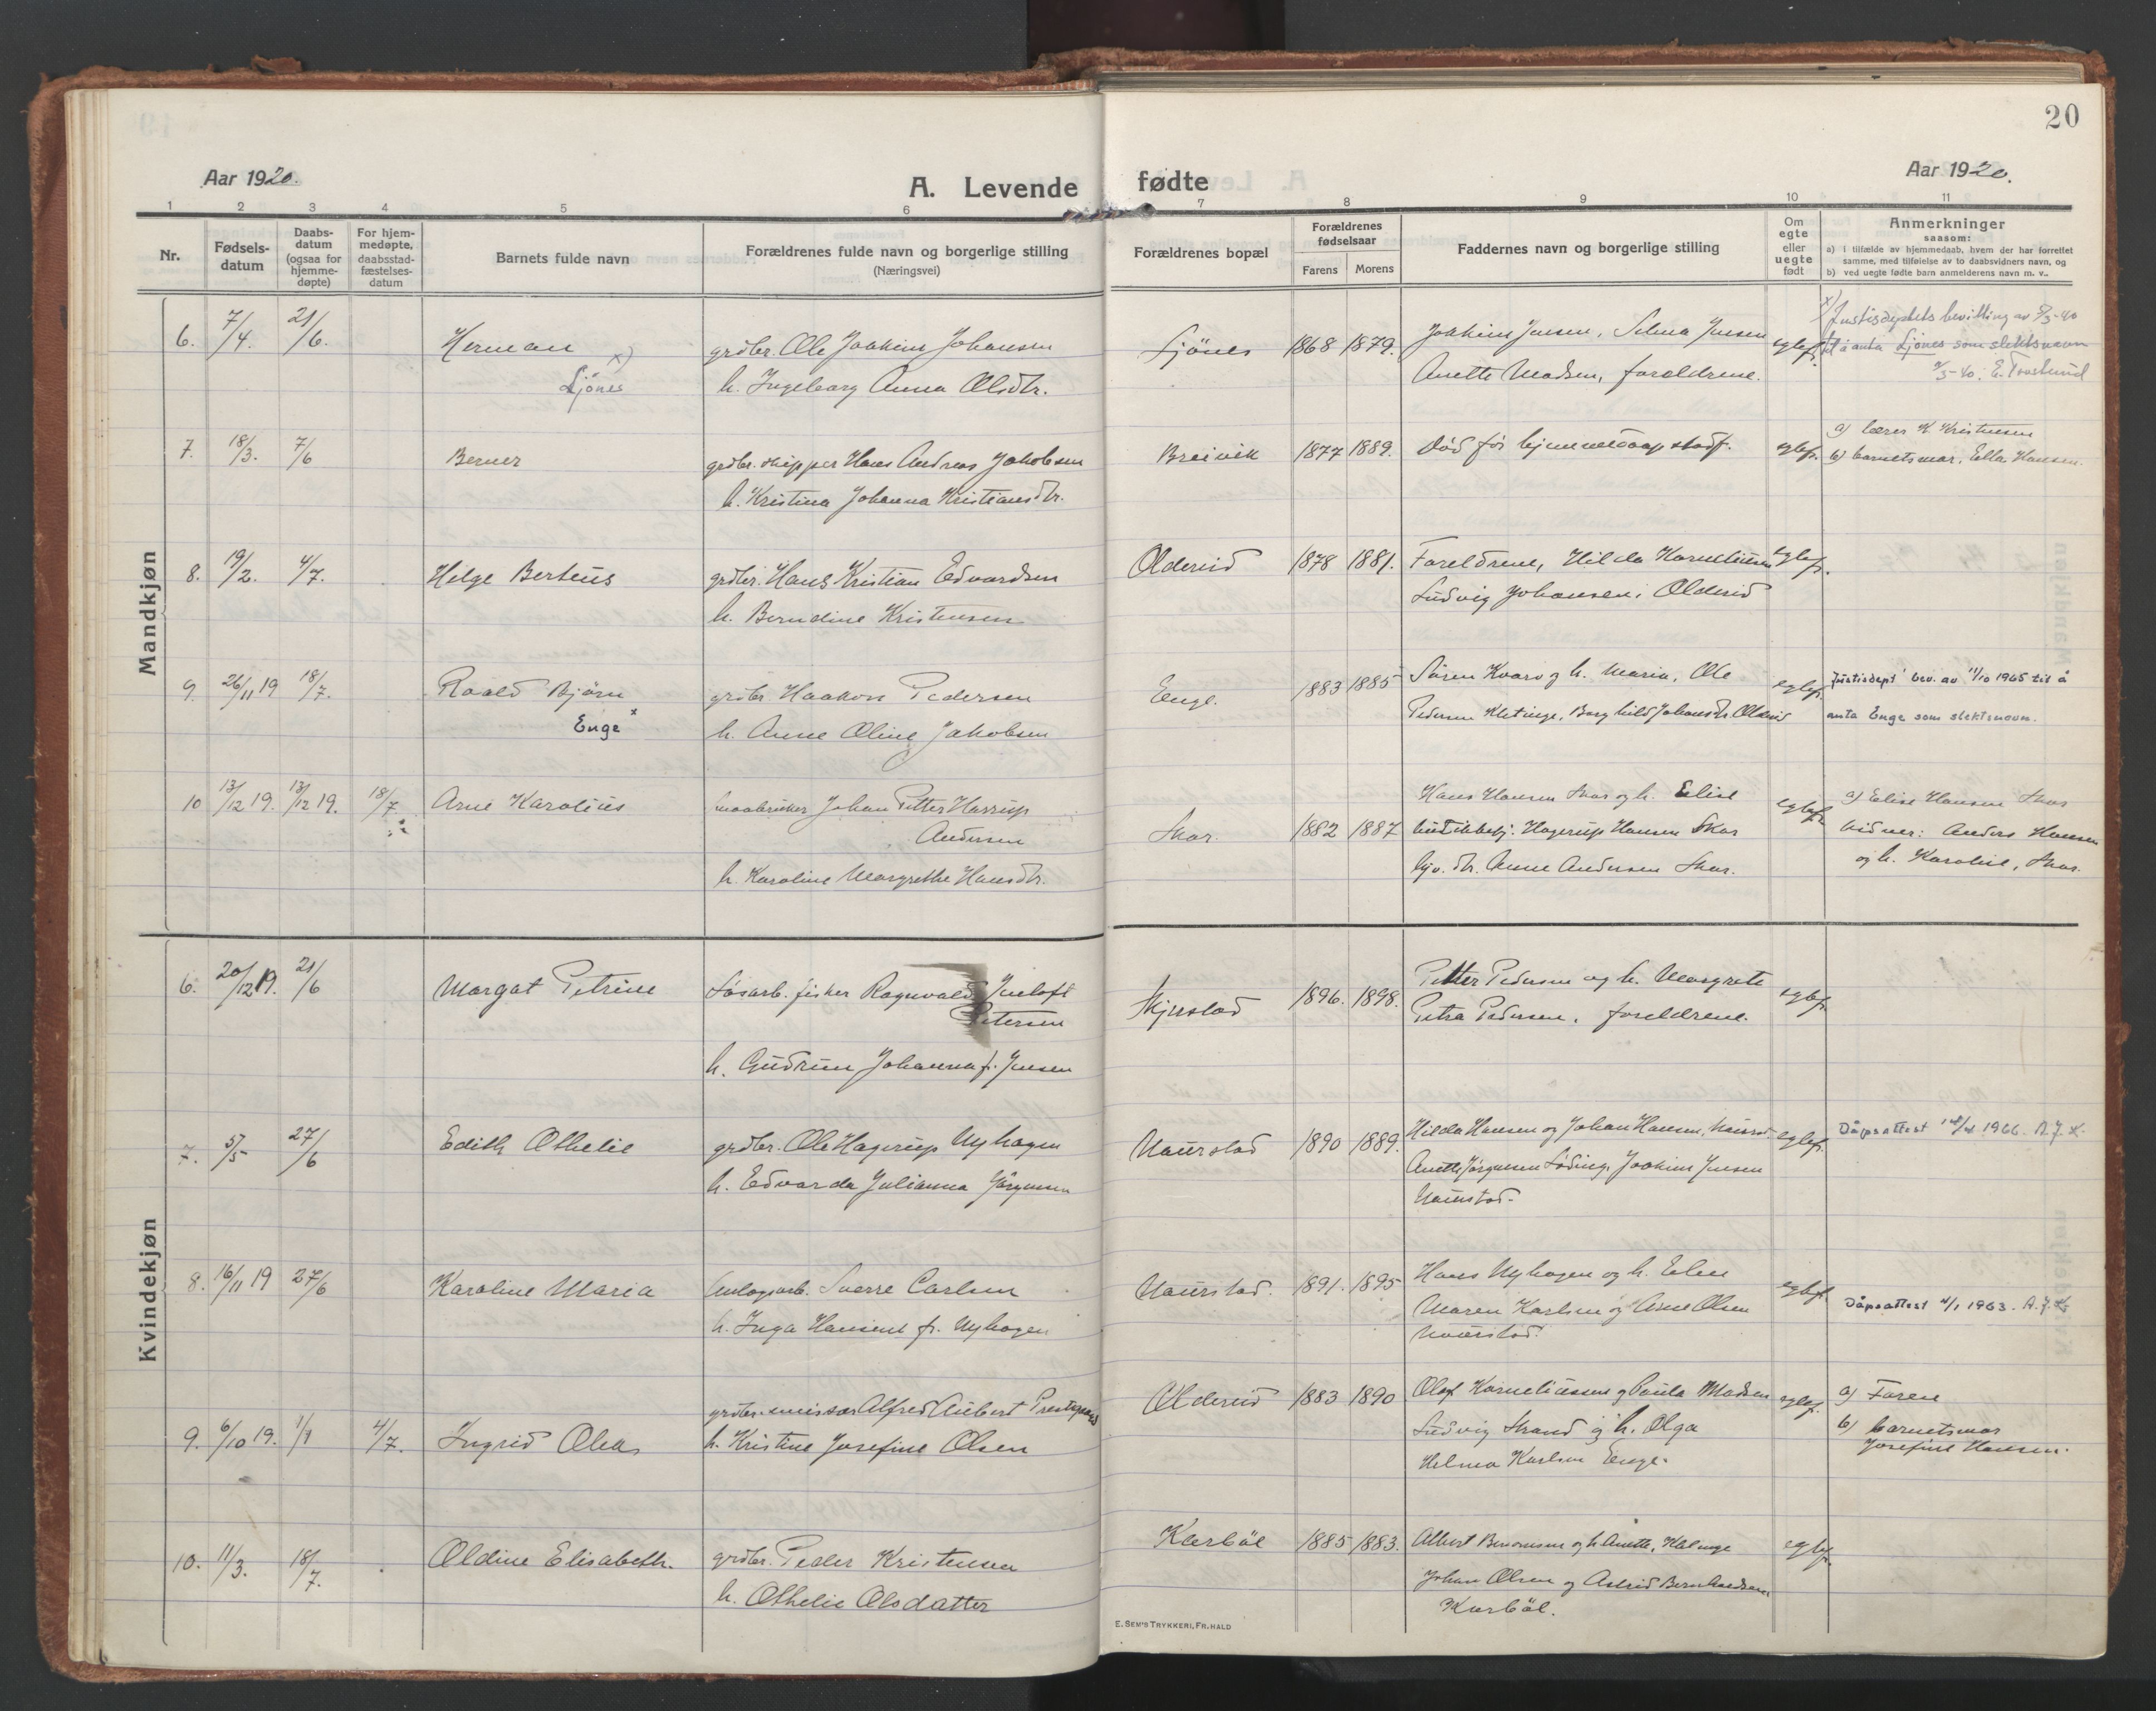 20
Aar 1920.
A. Levende
fødte
Aar 1920.
1 2 3 4 5 6 7 8 9 10 11
Nr.
Fødsels-
datum
Daabs-
datum
(ogsaa for
hjemme-
døpte)
For hjem-
medøpte,
daabsstad-
fæstelses-
datum
Barnets fulde navn
Forældrenes fulde navn og borgerlige stilling
(Næringsvei)
Forældrenes bopæl
Forældrenes
fødselsaar
Farens Morens
Faddernes navn og borgerlige stilling
Om
egte
eller
uegte
født
Anmerkninger
saasom:
a) i tilfælde av hjemmedaab, hvem der har forrettet
samme, med tilføielse av to daabsvidners navn, og
b) ved uegte fødte barn anmelderens navn m. v..
Mandkjøn
6. 7/4. 21/6. Herman x)
Ljönes
grdbr. Ole Joakim Johansen
h. Ingeborg Anna Olsdtr.
Ljönes 1868 1879.
Joakim Jensen, Selma Jensen
Anette Madsen, foreldrene.
egtef.
x) Justisdeptets bevilling av 5/3-40
til å anta Ljönes som slektsnavn
E. Trostund
7. 18/3. 7/6 Berner
grdbr. skipper Hans Andreas Jakobsen
h. Kristina Johanna Kristiansdtr.
Breivik 1877 1889.
Död för hjemmedaap stadf.
egtef.
a) lærer K. Kristensen
b) barnetsmor, Ella Hansen.
8. 19/2. 4/7. Helge Berteus
grdbr. Hans Kristian Edvardsen
h. Berndine Kristensen
Oldereid 1878 1881.
Foreldrene, Hilda Korneliussen
Ludvig Johansen, Oldereid
egtef.
9. 26/11 19 18/7. Roald Björn
Enge x
grdbr. Haakon Pedersen
h. Anne Oline Jakobsen
Enge. 1883 1885
Sören Kvarv og h. Maria, Ole
Pedersen Kletinge, Borghild Johansdtr. Oldereid
egtef.
Justisdept' bev. av 11/10 1965 til å
anta Enge som slektsnavn.
10 13/12 19. 13/12 19. 18/7. Arne Karolius
smaabruker Johan Petter Harrup
Andersen
h. Karoline Margrethe Hansdtr.
Skar. 1882 1887
Hans Hansen Skar og h. Elise
butikkbetj. Hagerup Hansen Skar
hjv. dtr. Anne Andersen Skar.
egtef.
a) Elise Hansen Skar
vidner: Anders Hansen
og h. Karoline, Skar.
Kvindekjøn
6. 20/12 19. 21/6 Margot Petrine
Løsarb. fisker Ragnvald Jentoft
Petersen
h. Gudrun Johanna f. Jensen
Skjerstad 1896. 1898.
Petter Pedersen og h. Margrete
Petra Pedersen, foreldrene.
egtef.
7. 5/5 27/6 Edith Othelie
grdbr. Ole Hagerup Nyhagen
h. Edvarda Julianna Jörgensen
Naurstad 1890 1889.
Hilda Hansen og Johan Hansen, Naurst.
Anette Jörgensen Löding, Joakim Jensen
Naurstad.
egtef.
Dåpsattest 18/4 1966. A.J.K.
8. 16/11 19 27/6 Karoline Maria
Anlægsarb. Sverre Carlsen
h. Inga Hansine f. Nyhagen
Naurstad. 1891. 1895
Hans Nyhagen og h. Elen
Maren Karlsen og Arne Olsen
Naurstad.
egtef.
Dåpsattest 4/1 1963. A.J.K.
9. 6/10 19. 1/1 4/7. Ingrid Olea
grdbr. emissær Alfred Aubert Prestegaard
h. Kristine Josefine Olsen
Oldereid 1883 1890
Olaf Korneliussen og Paula Madsen
Ludvig Strand og h. Olga
Helma Karlsen Enge.
egtef.
a) Faren
b) barnetsmor
Josefine Hansen.
10. 11/3. 18/7. Oldine Elisabeth.
grdbr. Peder Kristensen
h. Othelie Olsdatter
Karböl 1885 1883.
Albert Benonisen og h. Anette,
Johan Olsen og Astrid Bernhardsen
Karböl.
egtef.
E. SEM'S TRYKKERI, FR.HALD